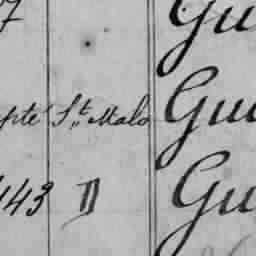 7 Gu
pte St Malo Gu
143 D Gu